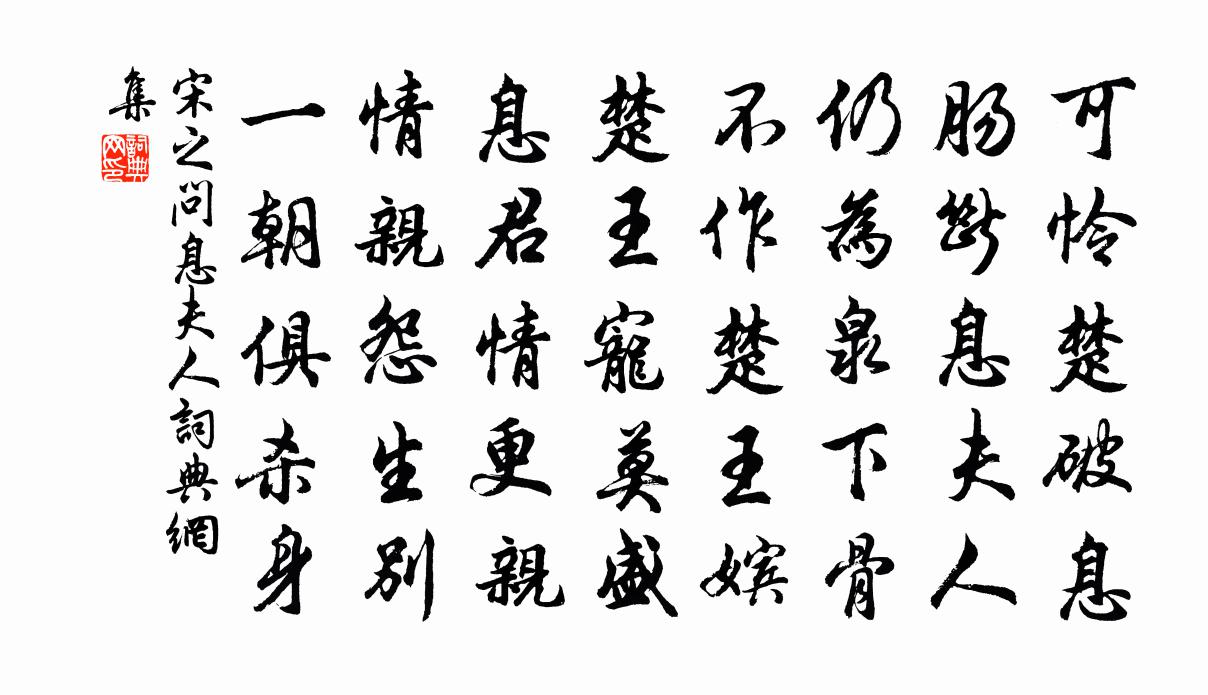 可怜楚破息
肠断息夫人
仍為泉下骨
不作楚王嫔
楚王寵莫盛
息君情更親
情親怨生别
一朝俱杀身
宋之问息夫人詞典網
集
詞典网印